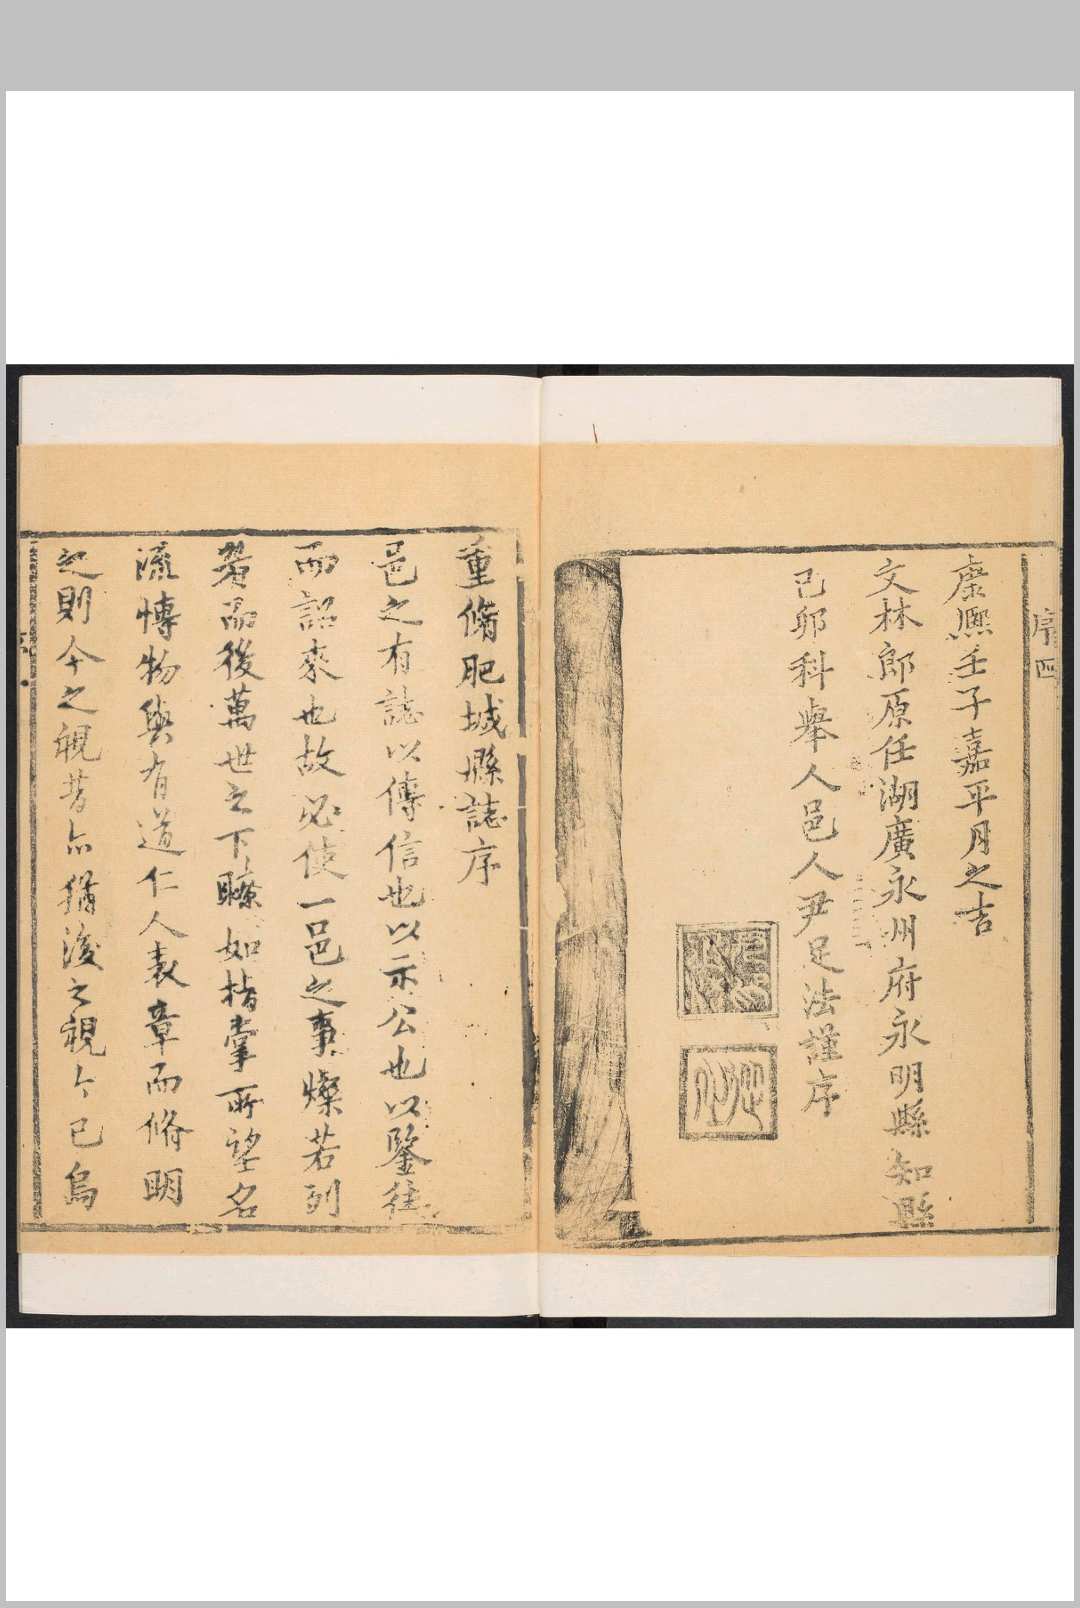 序四
康熙壬子嘉平月之吉
文林郎原任湖廣永州府永明縣知縣
己卯科舉人邑人尹足法謹序
重脩肥城縣誌序
邑之有誌以傳信也以示公也以鑒往
而詔來也故必使一邑之事燦若列
眉而後萬世之下瞭如指掌所望名
流愽物與有道仁人表章而脩明
之則今之視昔亦猶後之視今已烏